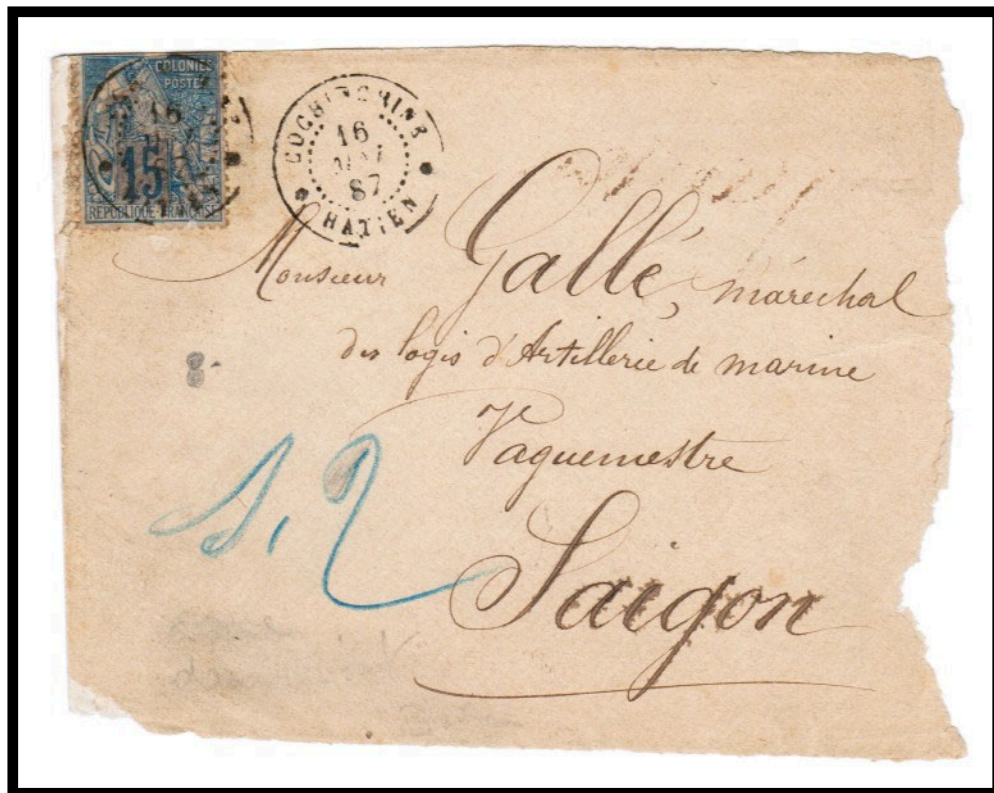 COLONIES
POSTE
15
REPUBLIQUE FRANCAISE
COCHINCHINE
16
MAI
87
HATIEN
Monsieur Gallé, maréchal
des logis d'Artillerie de marine
Vaguemestre
Saigon